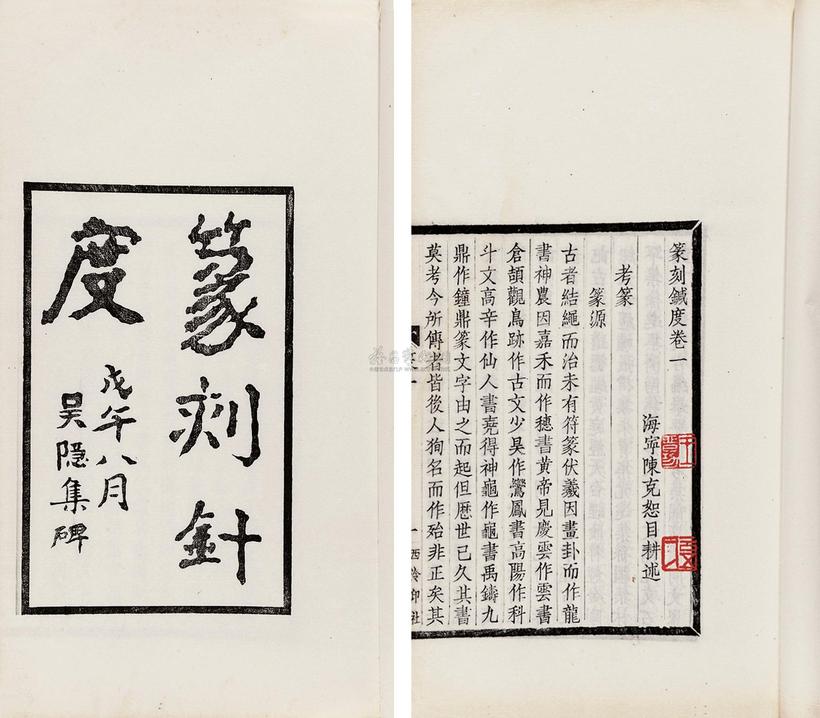 篆刻針
度
戊午八月
吴隐集碑
篆刻鍼度卷一
海寧陳克恕目耕述
考篆
篆源
古者結繩而治未有符篆伏羲因畫卦而作龍
書神農因嘉禾而作穗書黄帝見慶雲作雲書
倉頡觀鳥跡作古文少昊作鸞鳳書高陽作科
斗文高辛作仙人書堯得神龜作龜書禹鑄九
鼎作鐘鼎篆文字由之而起但厯世已久其書
莫考今所傳者皆後人狥名而作殆非正矣其
西泠印社